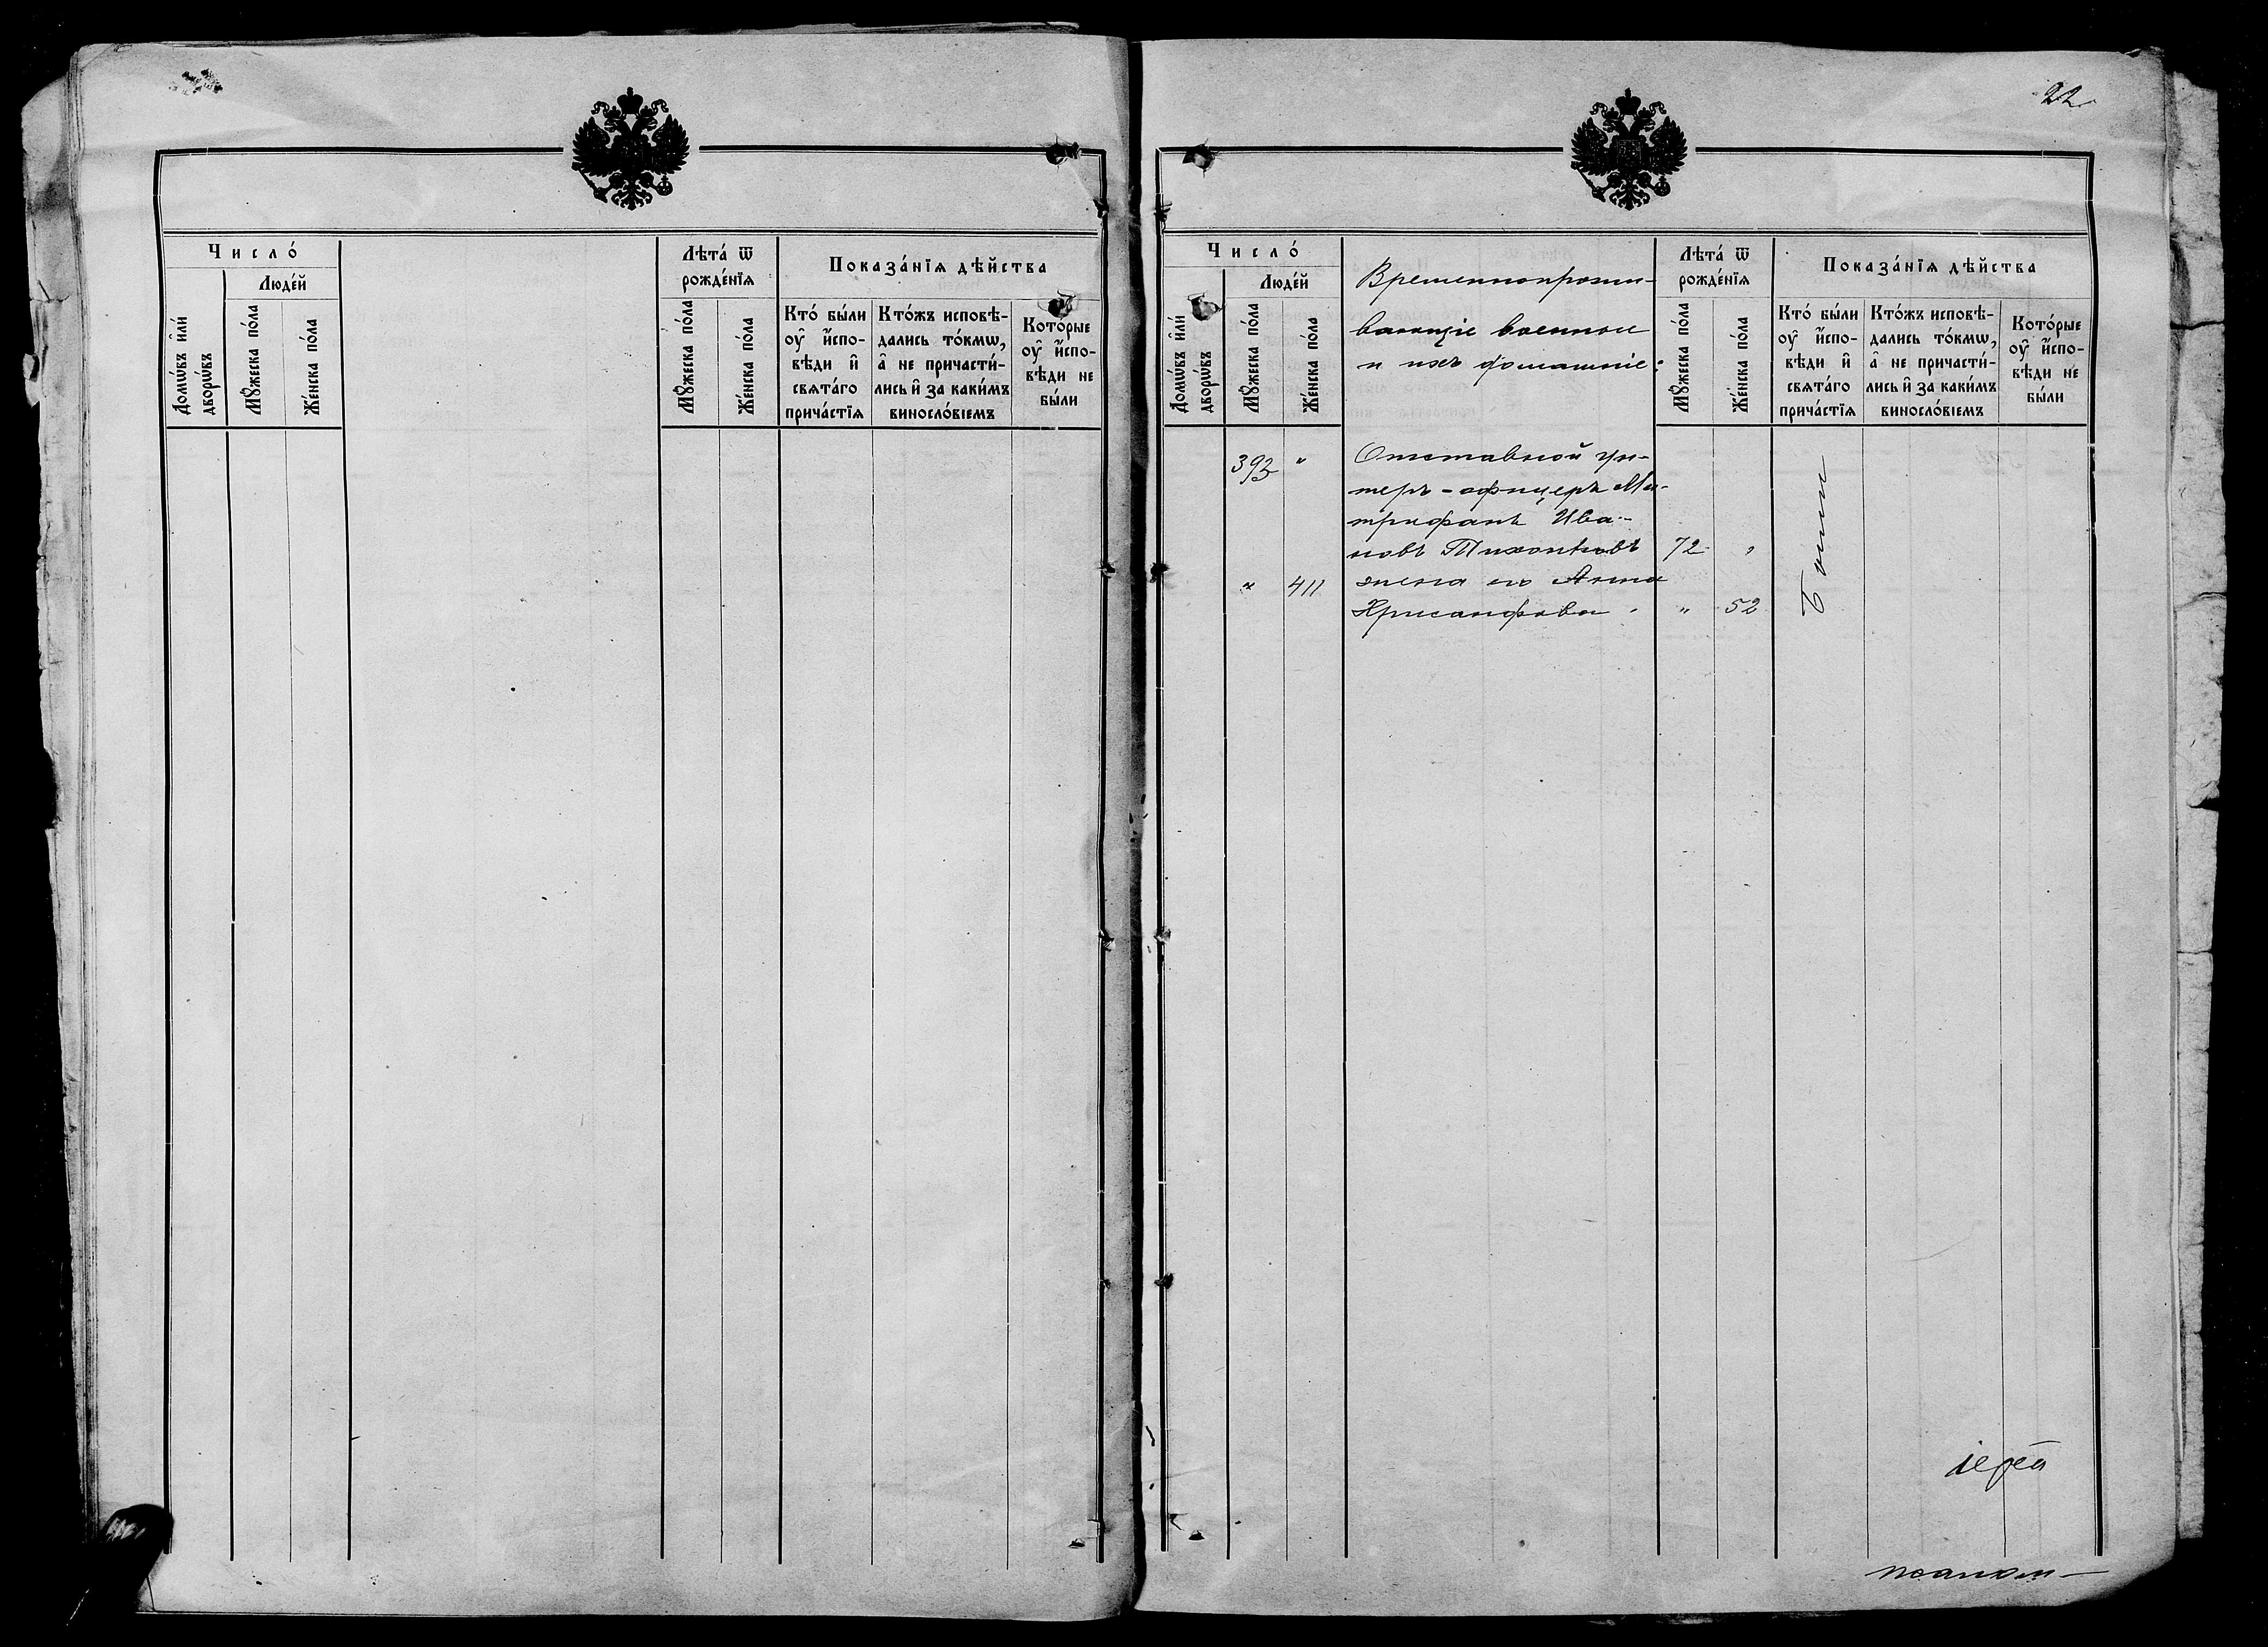 Число́
Люде́й
Домѡ́въ и҆лѝ дворѡ́въ
Мꙋ́жеска по́ла
Же́нска по́ла
Лѣта́ ѿ рожде́нїѧ
Мꙋ́жеска по́ла
Же́нска по́ла
Показа́нїѧ дѣ́йства
Кто́ бы́ли
оу҆ и҆спо-
вѣди и҆
свѧта́го
прича́стїѧ
Кто́жъ исповѣ-
дались то́кмѡ,
а҆ не причасти́-
лись и҆ за каки́мъ
виносло́вїемъ
Кото́рые
оу҆ и҆спо-
вѣди не
бы́ли
22
Число́
Люде́й
Домѡ́въ и҆лѝ дворѡ́въ
Мꙋ́жеска по́ла
Же́нска по́ла
Временнопрожи-
вающіе военные
и ихъ домашніе:
Лѣта́ ѿ рожде́нїѧ
Мꙋ́жеска по́ла
Же́нска по́ла
Показа́нїѧ дѣ́йства
Кто́ бы́ли
оу҆ и҆спо-
вѣди и҆
свѧта́го
прича́стїѧ
Кто́жъ исповѣ-
дались то́кмѡ,
а҆ не причасти́-
лись и҆ за каки́мъ
виносло́вїемъ
Кото́рые
оу҆ и҆спо-
вѣди не
бы́ли
393 " Отставной ун-
теръ-офицеръ Ми-
трофанъ Ива-
новъ Тихонковъ 72 "
" 411 жена его Анна
Хрисанфова " 52
Были
іерей